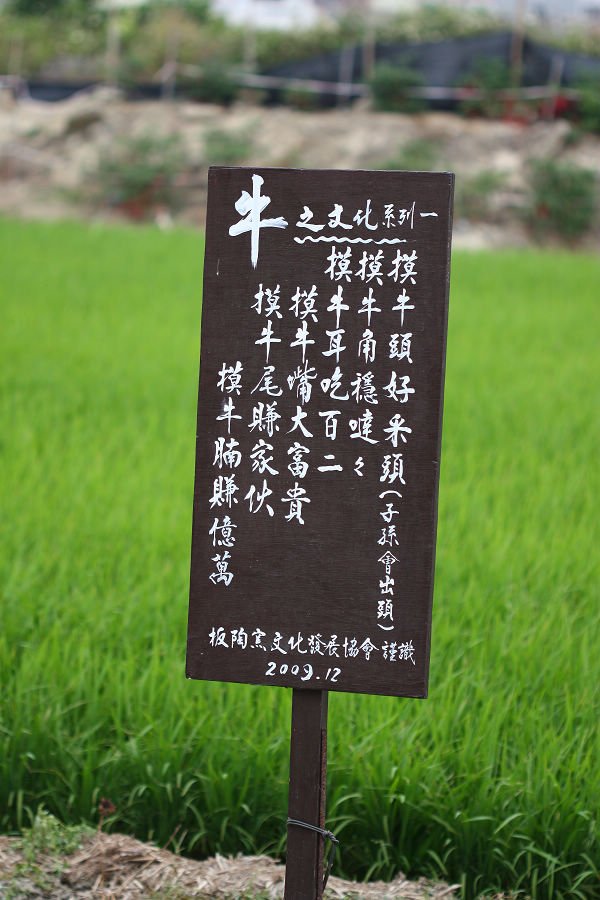 牛之文化系列一
摸牛頭好釆頭(子孫會出頭)
摸牛角穩噠々
摸牛耳吃百二
摸牛嘴大富貴
摸牛尾賺家伙
摸牛腩賺億萬
板陶窯文化發展協會 謹識
2009.12